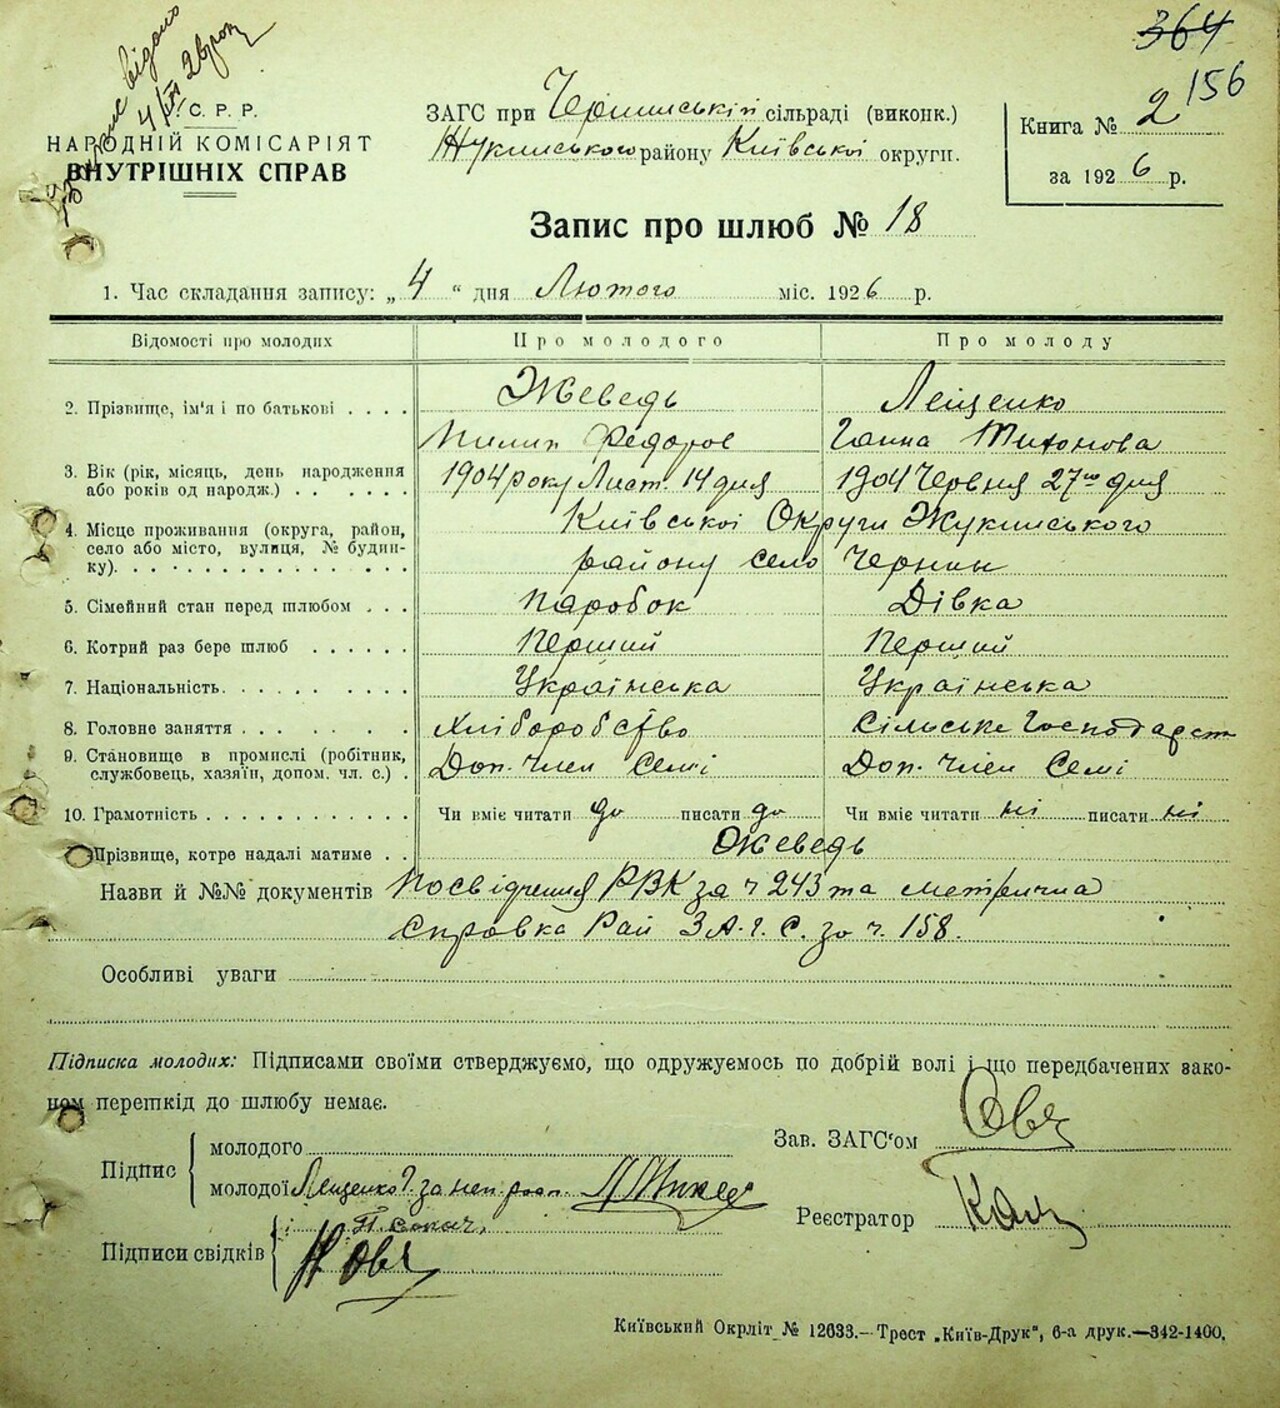 364
156
Випис видано
4/III 26 року
С. Р. Р.
НАРОДНІЙ КОМІСАРІЯТ
ВНУТРІШНІХ СПРАВ
ЗАГС при Чернинській сільраді (виконк.)
Жукинського району Київської округи.
Книга № 2
за 1926 р.
Запис про шлюб № 18
1. Час складання запису: „4“ дня Лютого міс. 1926 р.
Відомості про молодих Про молодого Про молоду
2. Прізвище, ім'я і по батькові . . . . Жеведь Лещенко
Пилип Федоров Ганна Тихонова
3. Вік (рік, місяць, день народження 1904 року Лист. 14 дня 1904 Червня 27го дня
або років од народж.) . . . . . .
4. Місце проживання (округа, район, Київської Округи Жукинського
село або місто, вулиця, № будин-
ку). . . . . . . . . . . . . . . району село Чернин
5. Сімейний стан перед шлюбом . . . Паробок Дівка
6. Котрий раз бере шлюб . . . . . . Перший Перший
7. Національність. . . . . . . . . . Українська Українська
8. Головне заняття . . . . . . . . Хліборобство Сільське Господарст
9. Становище в промислі (робітник, Доп. Член Семї Доп. Член Семі
службовець, хазяїн, допом. чл. с.) .
10. Грамотність . . . . . . . . . . . . Чи вміє читати да писати да Чи вміє читати ні писати ні
Прізвище, котре надалі матиме . . Жеведь
Назви й №№ документів Посвідчення РВК за ч 243 та метрична
справка Рай З А. г. С. за ч. 158.
Особливі уваги
Підписка молодих: Підписами своїми стверджуємо, що одружуємось по добрій волі і що передбачених зако-
ном перешкід до шлюбу немає.
Підпис
молодого
молодої Лещенко Г. за неп. розп.
Зав. ЗАГС'ом
Реєстратор
Підписи свідків
Київський Окрліт № 12633.—Трест „Київ-Друк“, 6-а друк.—342-1400.